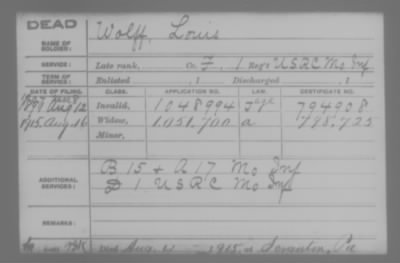 DEAD
NAME OF SOLDIER: Wolff, Louis
SERVICE: Late rank, Co. F, 1 Reg't U S R C Mo Inf
TERM OF SERVICE: Enlisted , 1 Discharged , 1
DATE OF FILING. CLASS. APPLICATION NO. LAW. CERTIFICATE NO.
Aug 12 Invalid, 1048994 794908
1915 Aug 16 Widow, 1.051.700 a 795.725
Minor,
ADDITIONAL SERVICES: B 15 + A 17 Mo Inf
D 1 U S R C Mo Inf
REMARKS:
Died Aug. 1915, at Scranton, Pa